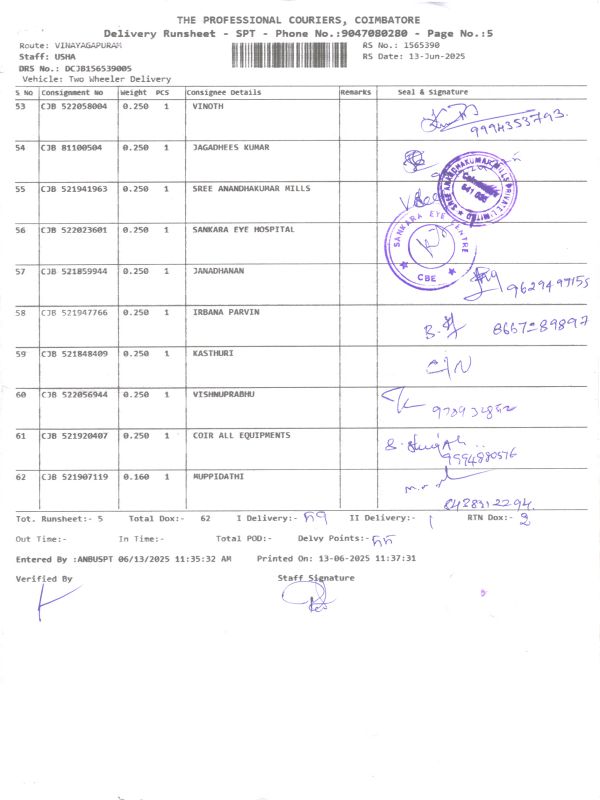 THE PROFESSIONAL COURIERS, COIMBATORE
Delivery Runsheet - SPT - Phone No.:9047080280 - Page No.:5
Route: VINAYAGAPURAM RS No.: 1565390
Staff: USHA RS Date: 13-Jun-2025
DRS No.: DCJB156539005
Vehicle: Two Wheeler Delivery
S No Consignment No Weight PCS Consignee Details Remarks Seal & Signature
53 CJB 522058004 0.250 1 VINOTH
9994353793.
54 CJB 81100504 0.250 1 JAGADHEES KUMAR
55 CJB 521941963 0.250 1 SREE ANANDHAKUMAR MILLS
SREE ANANDHAKUMAR MILLS PRIVATE LIMITED
56 CJB 522023601 0.250 1 SANKARA EYE HOSPITAL
SANKARA EYE CENTRE
CBE
57 CJB 521859944 0.250 1 JANADHANAN
9629497155
58 CJB 521947766 0.250 1 IRBANA PARVIN
8667289897
59 CJB 521848409 0.250 1 KASTHURI
C/N
60 CJB 522056944 0.250 1 VISHNUPRABHU
61 CJB 521920407 0.250 1 COIR ALL EQUIPMENTS
9994880576
62 CJB 521907119 0.160 1 MUPPIDATHI
Tot. Runsheet:- 5 Total Dox:- 62 I Delivery:- 59 II Delivery:- 1 RTN Dox:- 2
Out Time:- In Time:- Total POD:- Delvy Points:- 55
Entered By :ANBUSPT 06/13/2025 11:35:32 AM Printed On: 13-06-2025 11:37:31
Verified By Staff Signature